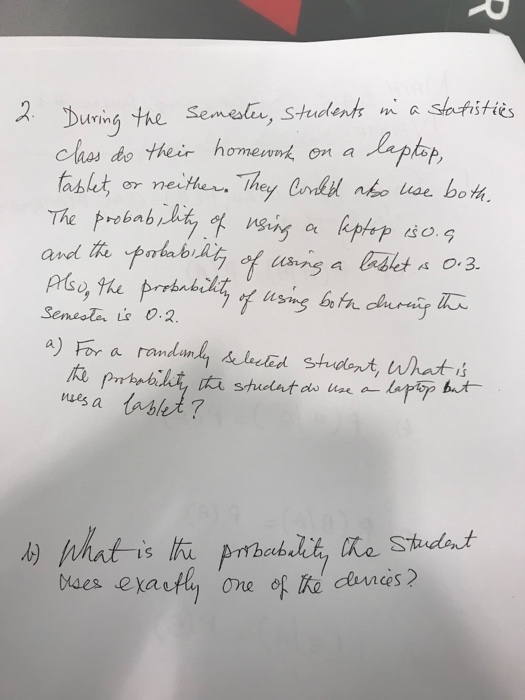 2. During the semester, students in a statistics
class do their homework on a laptop,
tablet, or neither. They could also use both.
The probability of using a laptop is 0.9
and the probability of using a tablet is 0.3.
Also, the probability of using both during the
Semester is 0.2.
a) For a randomly selected student, what is
the probability the student do use a laptop but
uses a tablet?
b) What is the probability the student
uses exactly one of the devices?